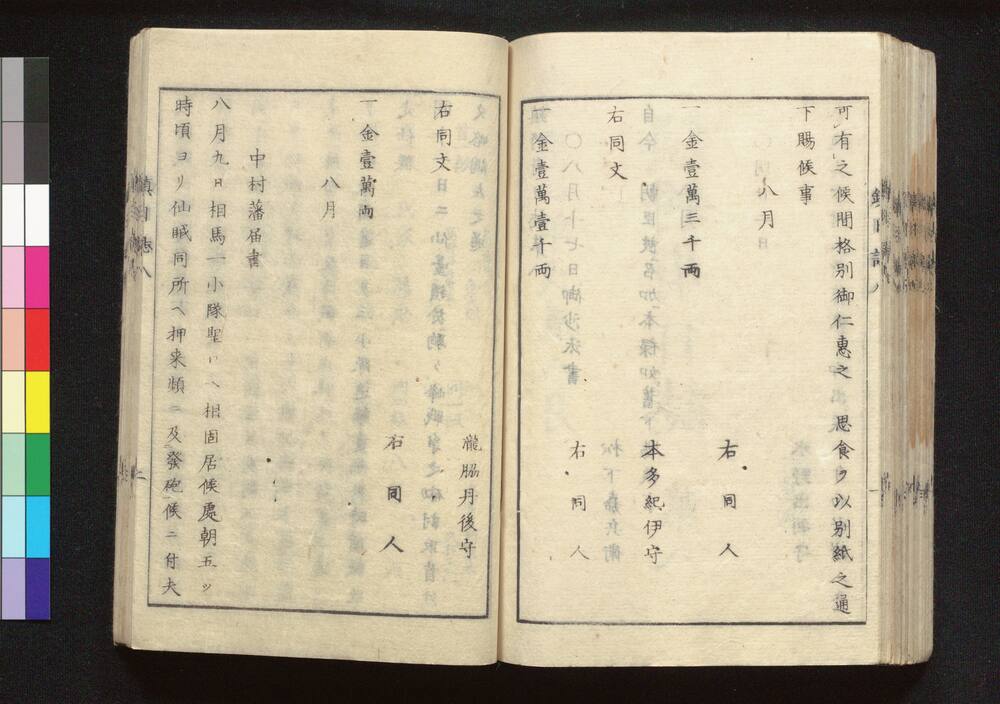 可有之候間格別御仁惠之 思食ヲ以別紙之通
下賜候事
八月
一金壹萬三千両
右同人
本多紀伊守
右同文
〇八月十七日御沙汰書
右同人
金壹萬壹千両
瀧脇丹後守
右同文
右同人
一金壹萬両
八月
中村藩届書
八月九日相馬一小隊聖ロヘ相固居候處朝五ツ
時頃ヨリ仙賊同所ヘ押来頻ニ及發砲候ニ付夫
鎮日誌八